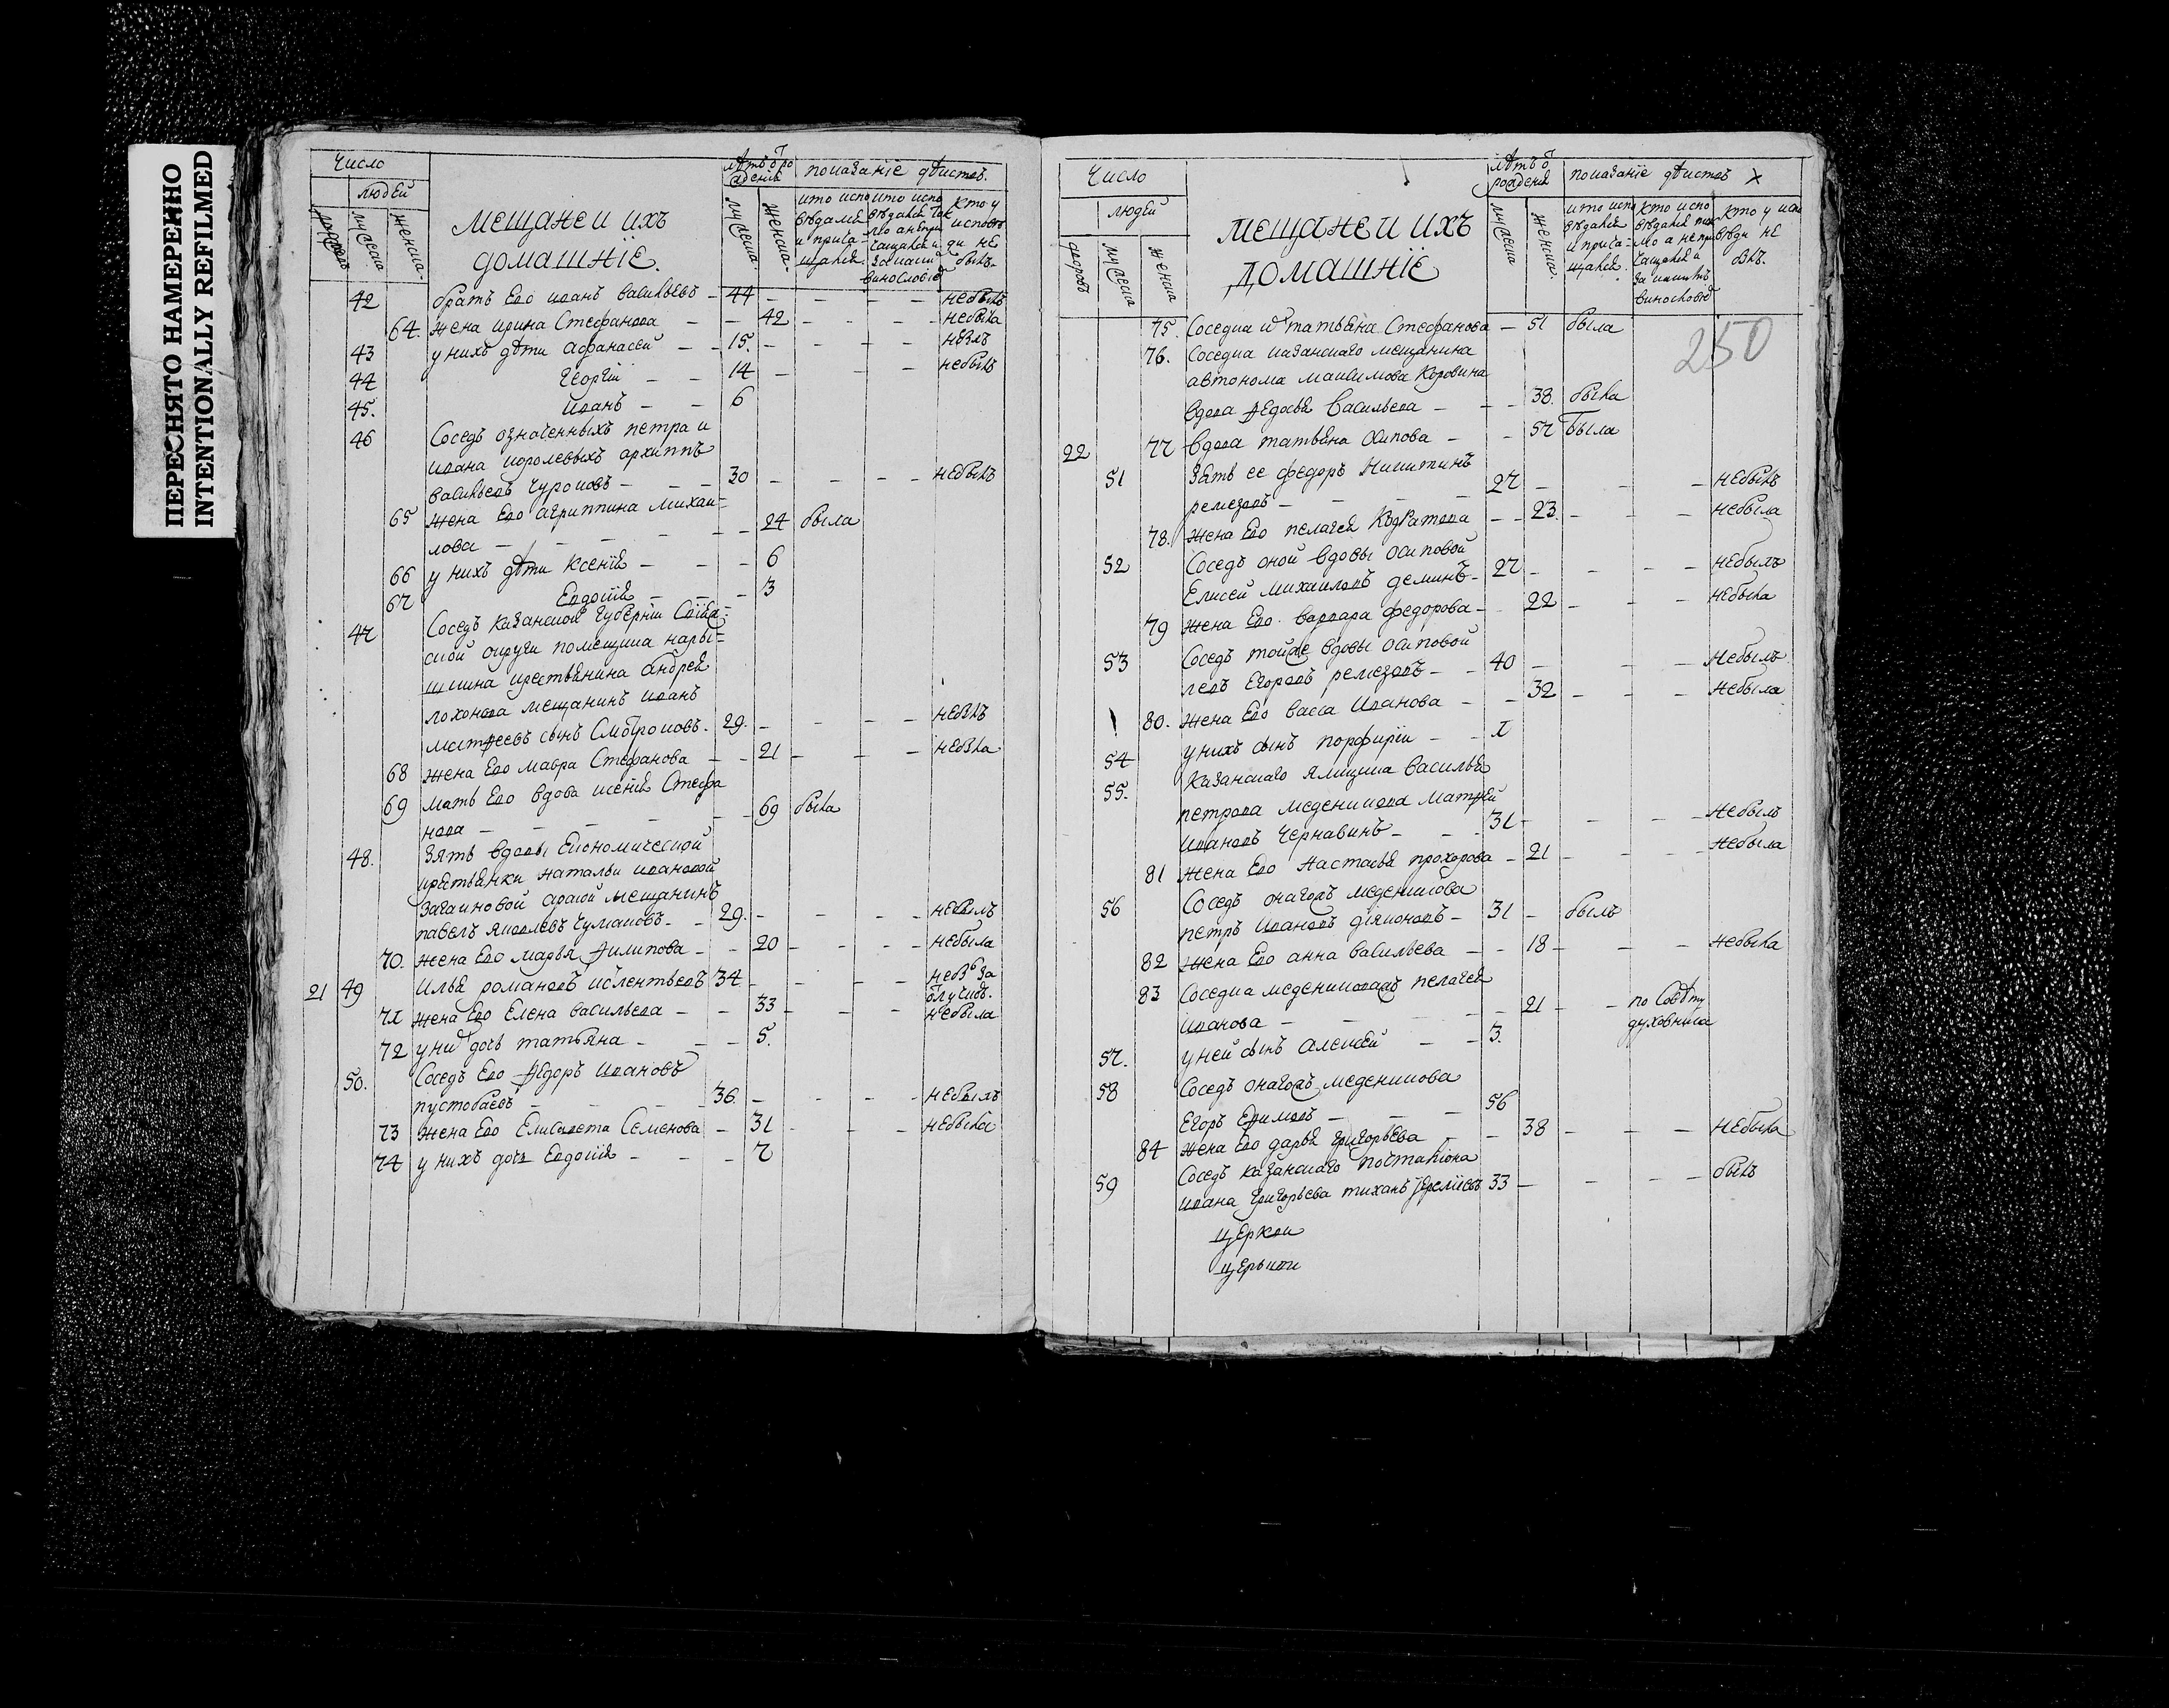 ПЕРЕСНЯТО НАМЕРЕННО
INTENTIONALLY REFILMED
Число
людей
мужеска
женска
мещане и ихъ
домашнїе.
лѣтъ ѿ ро
жденїя
мужеска
женска
показанїе дѣйстов.
кто у
исповѣ
ди не
былъ
42 братъ Его иванъ васильевъ - 44 - - - небылъ
64. жена ирина Стефанова - - 42 - - - небыла
43 у нихъ дѣти Афанасей - - 15. - - - небылъ
44 Георгїй - - 14 - - - небылъ
45. иванъ - - 6
46 Соседъ означенныхъ петра и
ивана королевыхъ архиппъ
васильевъ чуроковъ - - - 30 - - - - небылъ
65 жена Его агриппина михаи-
лова - - - - - 24 была
66 у нихъ дѣти Ксенїя - - - 6
67 Евдокїя - - - 3
47 Соседъ казанской Губернїи Свїяж-
ской округи помещика нары-
шкина крестьянина Андрея
лохонова мещанинъ иванъ
матѳеевъ сынъ Смотроковъ. 29. - - - - небылъ
68 жена Его мавра Стефанова - - 21 - - - небыла
69 мать Его вдова ксенїя Стефа
нова - - - - - 69 была
48. Зять вдовы Економической
крестьянки натальи ивановой
Загаиновой арской мещанинъ
павелъ яковлевъ чумаковъ - - 29. - - - небылъ
70. жена Его марья Филипова - - 20 - - - небыла
21 49 Илья романовъ иклентьевъ 34 - - - небъ за
ѿлучкъ.
71 жена Его Елена васильева - - 33 - - - небыла
72 у ни дочь татьяна - - - 5.
50. Соседъ Его Ѳедоръ ивановъ
пустобаевъ - - - 36 - - - небылъ
73 жена Его Елисавета Семенова - 31 - - - небыла
74 у нихъ дочь Евдокїя - - - 7
Число
людей
дворовъ
мужеска
женска
мещане и ихъ
домашнїе
лѣтъ ѿ
рожденїя
мужеска
женска.
показанїе дѣйстов х
250
75. Соседка и татьяна Стефанова - 51 была
76. Соседка казанскаго мещанина
автонома максимова Коровина
вдова Ѳедосья васильева - - - 38. была
22 77 вдова татьяна Осипова - - 57 была
51 Зять ее федоръ Никитинъ
ремезовъ - - - - 27 - - - небылъ
78. жена Его пелагея Кодратова - - 23. - - - небыла
52 Соседъ оной вдовы осиповой
Елисей михаиловъ деминъ - 27 - - - - небылъ
79 жена Его варвара федорова - - 22 - - - небыла
53 Соседъ тойже вдовы осиповой
левъ Егоровъ ремезовъ - - 40 - - - небылъ
80. жена Его васса Иванова - - 32 - - - небыла
54 у нихъ сынъ порфирїи - - 1
55. Казанскаго ямщика василья
петрова меденикова матѳей
ивановъ Чернавинъ - - - 31 - - - - небылъ
81 жена Его настасья прохорова - 21 - - - небыла
56 Соседъ онагожъ меденикова
петръ ивановъ дїяконовъ - 31 - былъ
82 жена Его анна васильева - - 18 - - - небыла
83 Соседка меденикова пелагея
иванова - - - - 21 - - по Совѣту
духовника
57. у ней сынъ алексей - - 3.
58 Соседъ онагожъ меденикова
Егоръ Ефимовъ - - - 56
84 жена Его дарья григорьева - - 38 - - - небыла
59 Соседъ казанскаго почталїона
ивана григорьева тиханъ 33 - - - - былъ
церкви
церькви